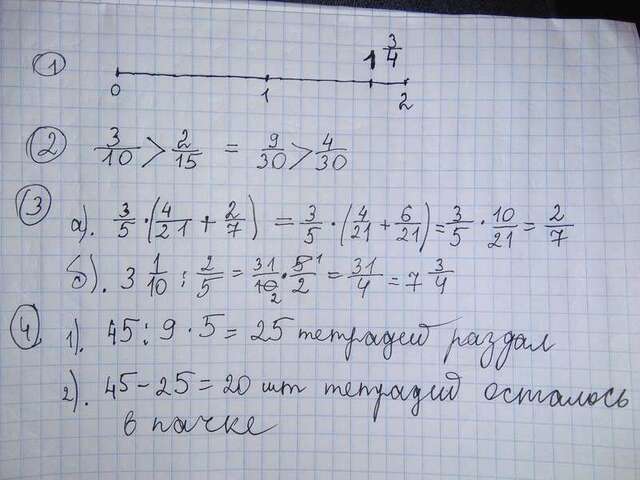 1
1 3/4
0 1 2
2 3/10 > 2/15 = 9/30 > 4/30
3 а). 3/5 · (4/21 + 2/7) = 3/5 · (4/21 + 6/21) = 3/5 · 10/21 = 2/7
б). 3 1/10 : 2/5 = 31/10 2 · 5 1/2 = 31/4 = 7 3/4
4 1). 45 : 9 · 5 = 25 тетрадей раздал
2). 45 - 25 = 20 шт тетрадей осталось
в пачке